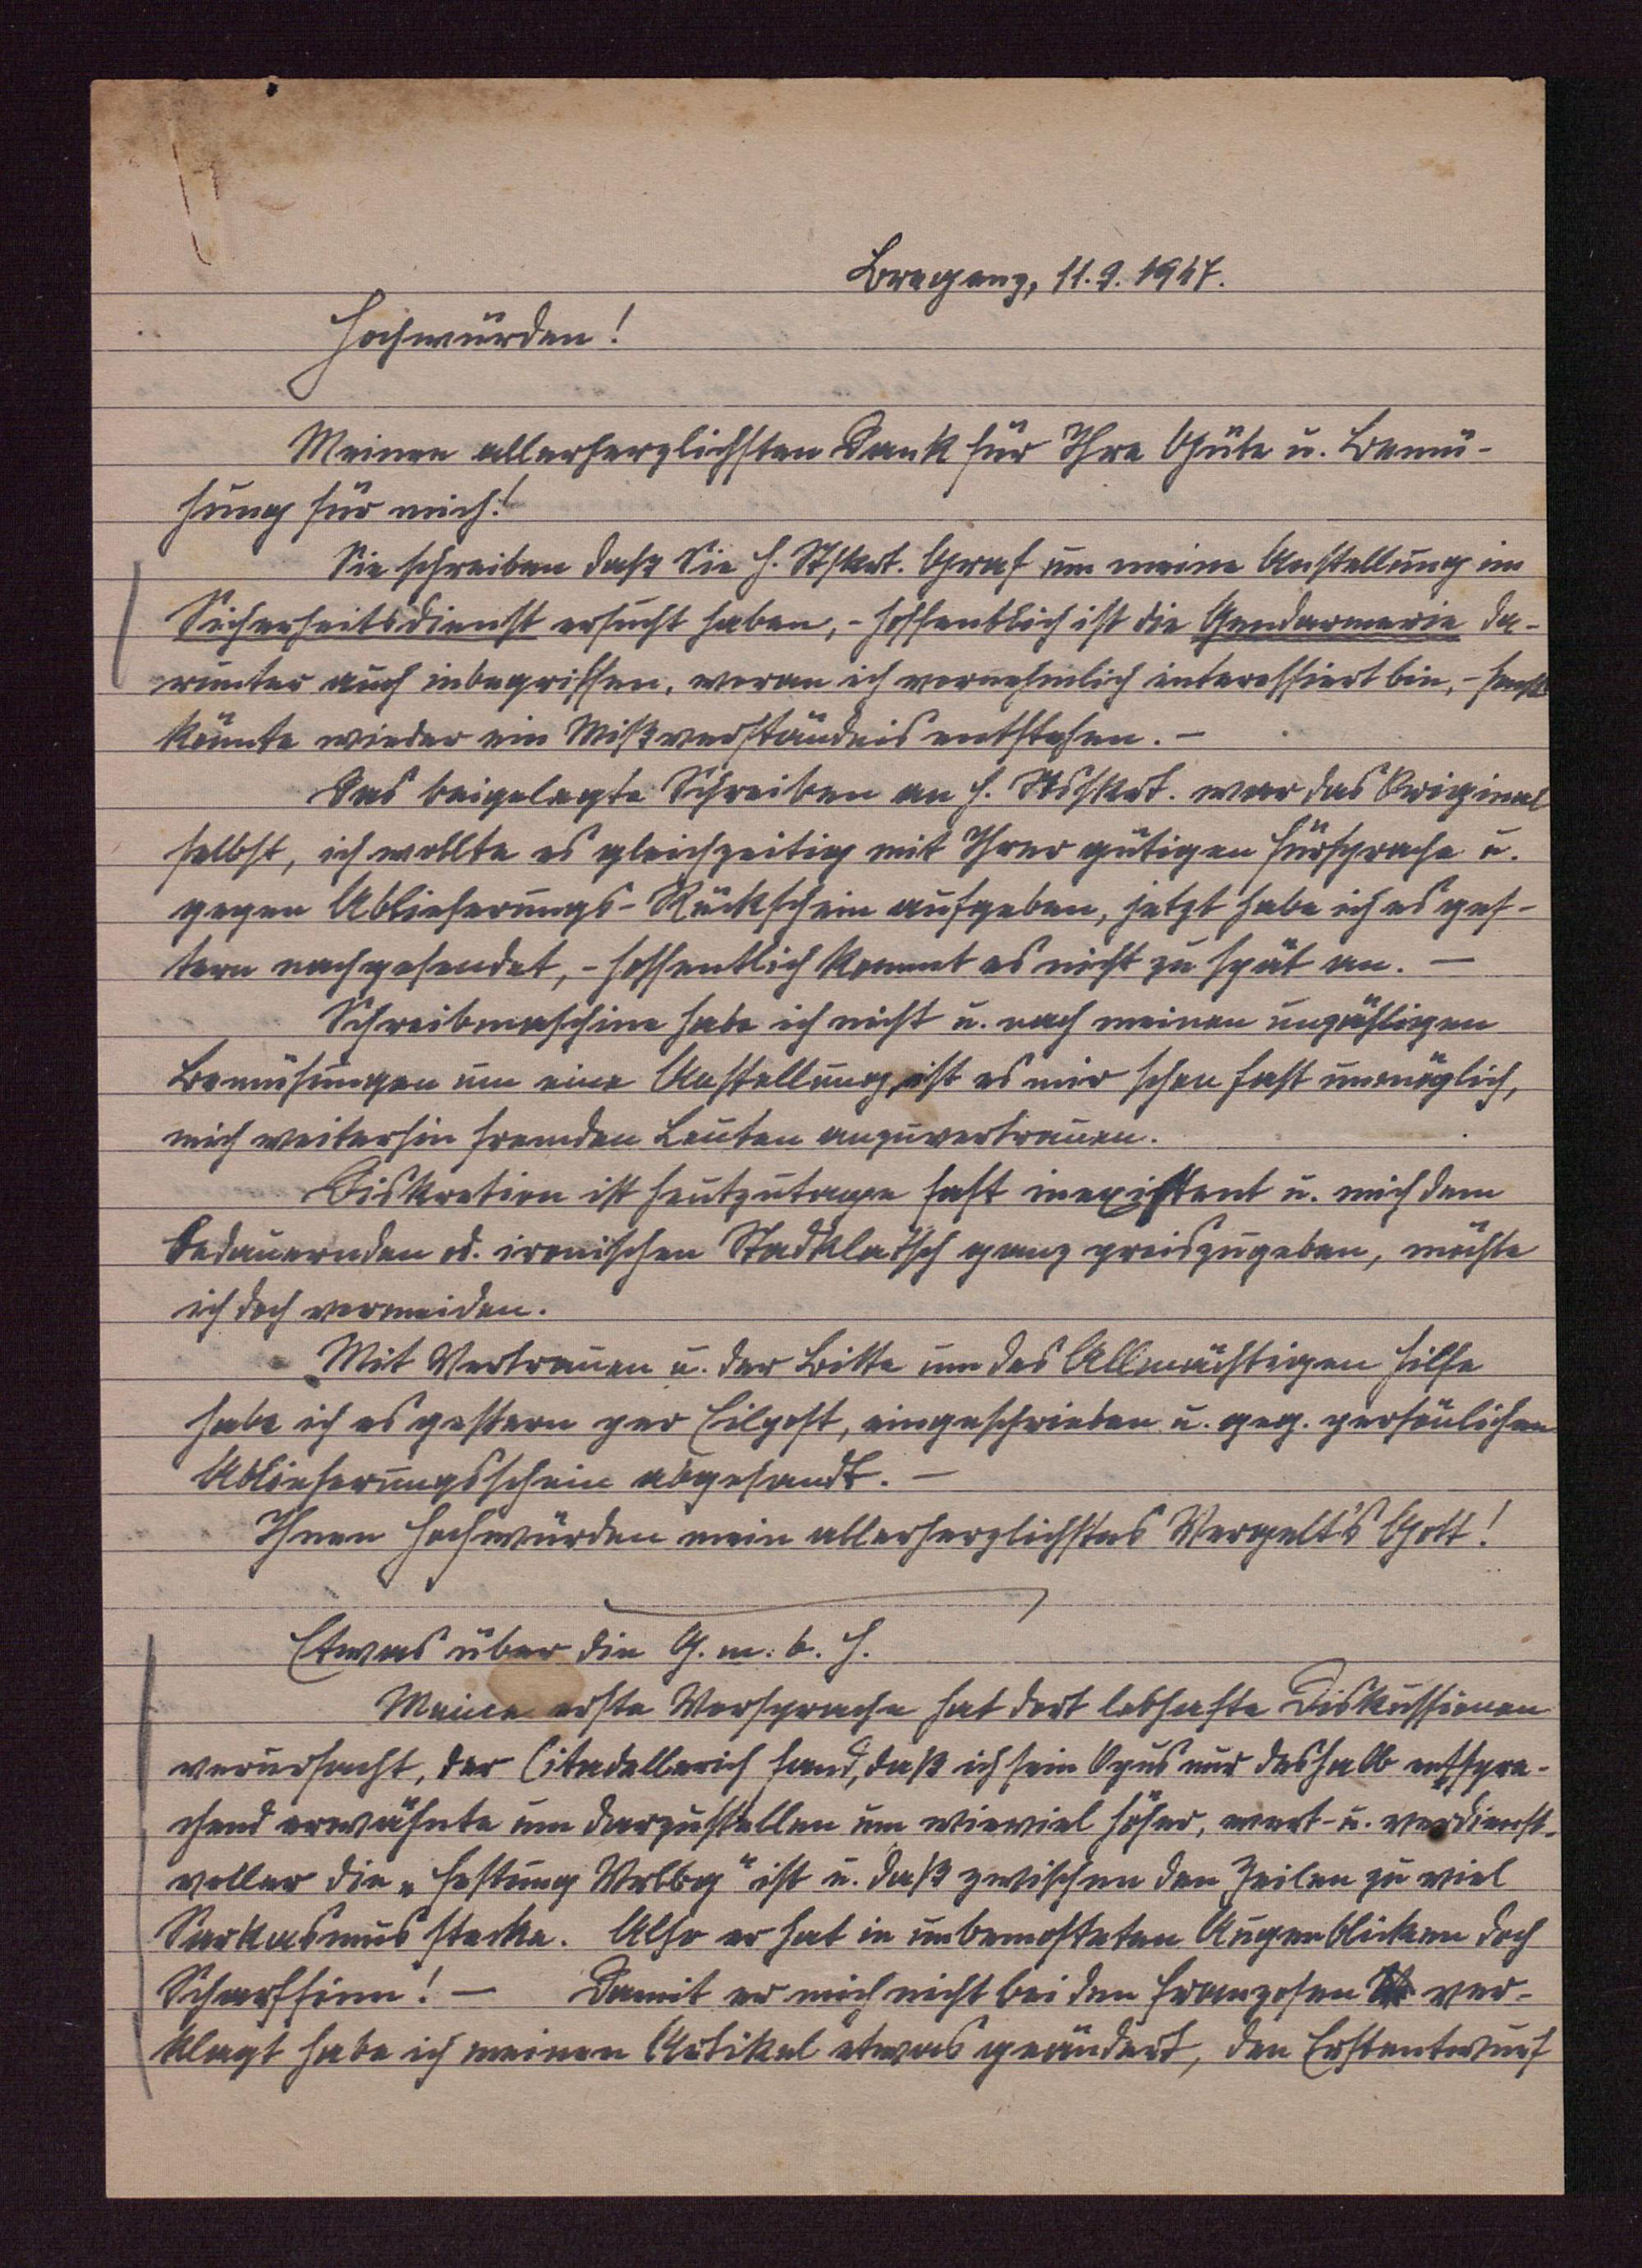 Bregenz, 11.9.1947.
Hochwürden!
Meinen allerherzlichsten Dank für Ihre Güte u. Bemü-
hung für mich!
Sie schreiben daß Sie H. Stskrt. Graf um meine Anstellung im
Sicherheitsdienst ersucht haben, - hoffentlich ist die Gendarmerie da-
runter auch inbegriffen, woran ich vornehmlich interessiert bin, - sonst
könnte wieder ein Mißverständnis entstehen. -
Das beigelegte Schreiben an H. Stskrt. war das Original
selbst, ich wollte es gleichzeitig mit Ihrer gütigen Fürsprache u.
gegen Ablieferungs-Rückschein aufgeben, jetzt habe ich es ges-
tern nachgesendet, - hoffentlich kommt es nicht zu spät an. -
Schreibmaschine habe ich nicht u. nach meinen unzähligen
Bemühungen um eine Anstellung, ist es mir schon fast unmöglich,
mich weiterhin fremden Leuten anzuvertrauen.
Diskretion ist heutzutage fast inexistent u. mich dem
bedauernden od. ironischen Stadklatsch ganz preiszugeben, möchte
ich doch vermeiden.
Mit Vertrauen u. der Bitte um des Allmächtigen Hilfe
habe ich es gestern per Eilpost, eingeschrieben u. geg. persönlichen
Ablieferungsschein abgesandt. -
Ihnen Hochwürden mein allerherzlichstes Vergelt's Gott!
Etwas über die G.m.b.H.
Meine erste Vorsprache hat dort lebhafte Diskussionen
verursacht, der Citadellerich fand, daß ich sein Opus nur deshalb entspre-
chend erwähnte um darzustellen um wieviel höher, wert- u. verdienst-
voller die „Festung Vrlbg" ist u. daß zwischen den Zeilen zu viel
Sarkasmus stecke. Also er hat in unbemosteten Augenblicken doch
Scharfsinn! - Damit er mich nicht bei den Franzosen ver-
klagt habe ich meinen Artikel etwas geändert, den Erstentwurf